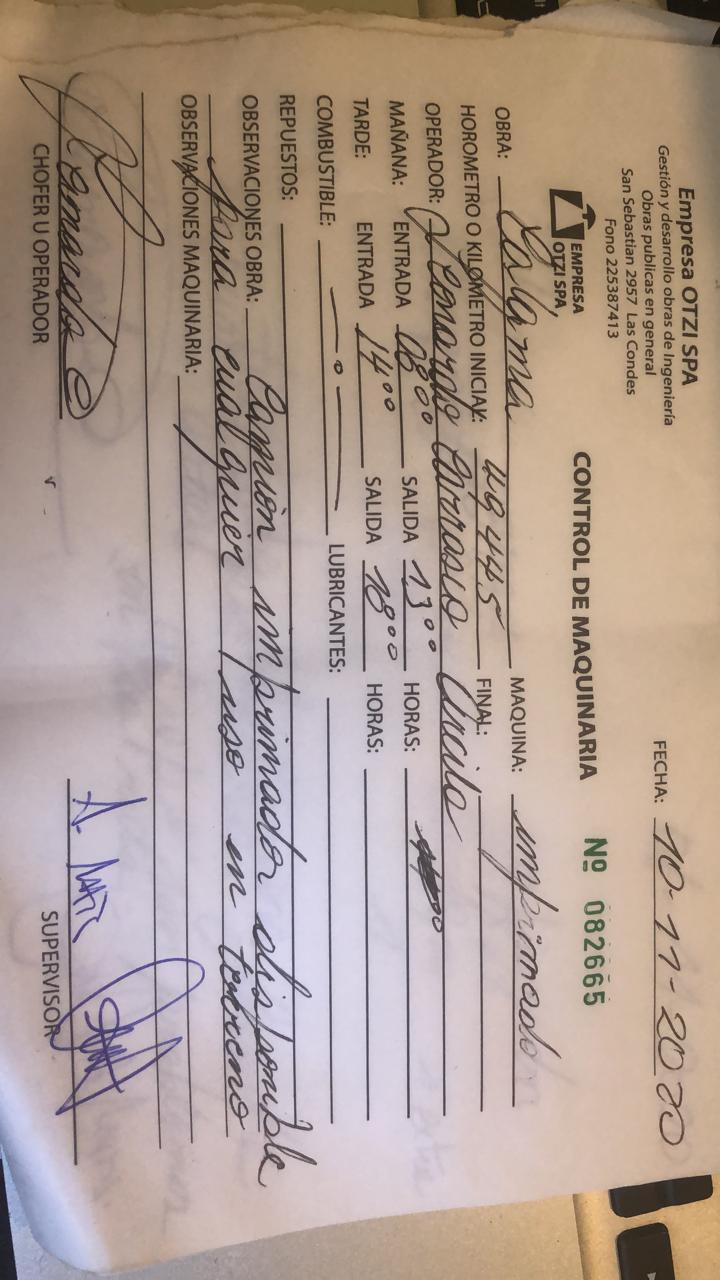 Empresa OTZI SPA
Gestión y desarrollo obras de Ingeniería
Obras publicas en general
San Sebastian 2957 Las Condes
Fono 225387413
FECHA: 10-11-2020
EMPRESA
OTZI SPA
CONTROL DE MAQUINARIA Nº 082665
OBRA: Calama MAQUINA: imprimador
HOROMETRO O KILOMETRO INICIAL: 49445 FINAL:
OPERADOR: Leonardo Carrasco
MAÑANA: ENTRADA 08:00 SALIDA 13:00 HORAS:
TARDE: ENTRADA 14:00 SALIDA 18:00 HORAS:
COMBUSTIBLE: LUBRICANTES:
REPUESTOS:
OBSERVACIONES OBRA: Camión imprimador disponible
para cualquier uso en terreno
OBSERVACIONES MAQUINARIA:
CHOFER U OPERADOR SUPERVISOR